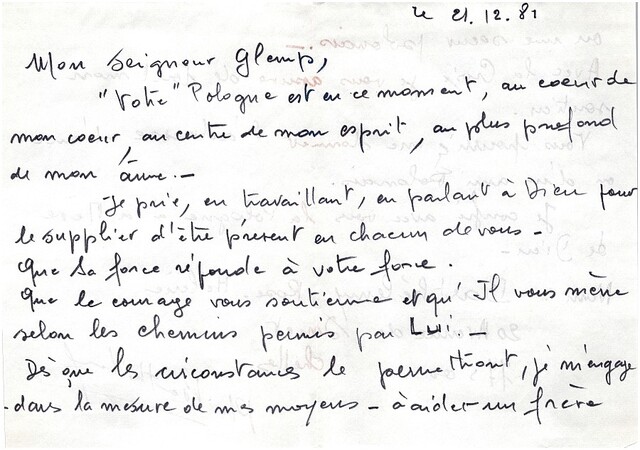 le 21.12.81
Mon Seigneur Glemp,
"Votre" Pologne est en ce moment, au coeur de
mon coeur, au centre de mon esprit, au plus profond
de mon âme. -
Je prie, en travaillant, en parlant à Dieu pour
le supplier d'être présent en chacun de vous -
Que Sa force réponde à votre force.
Que le courage vous soutienne et qu'Il vous mène
selon les chemins permis par Lui. -
Dès que les circonstances le permettront, je m'engage
- dans la mesure de mes moyens - à aider un frère